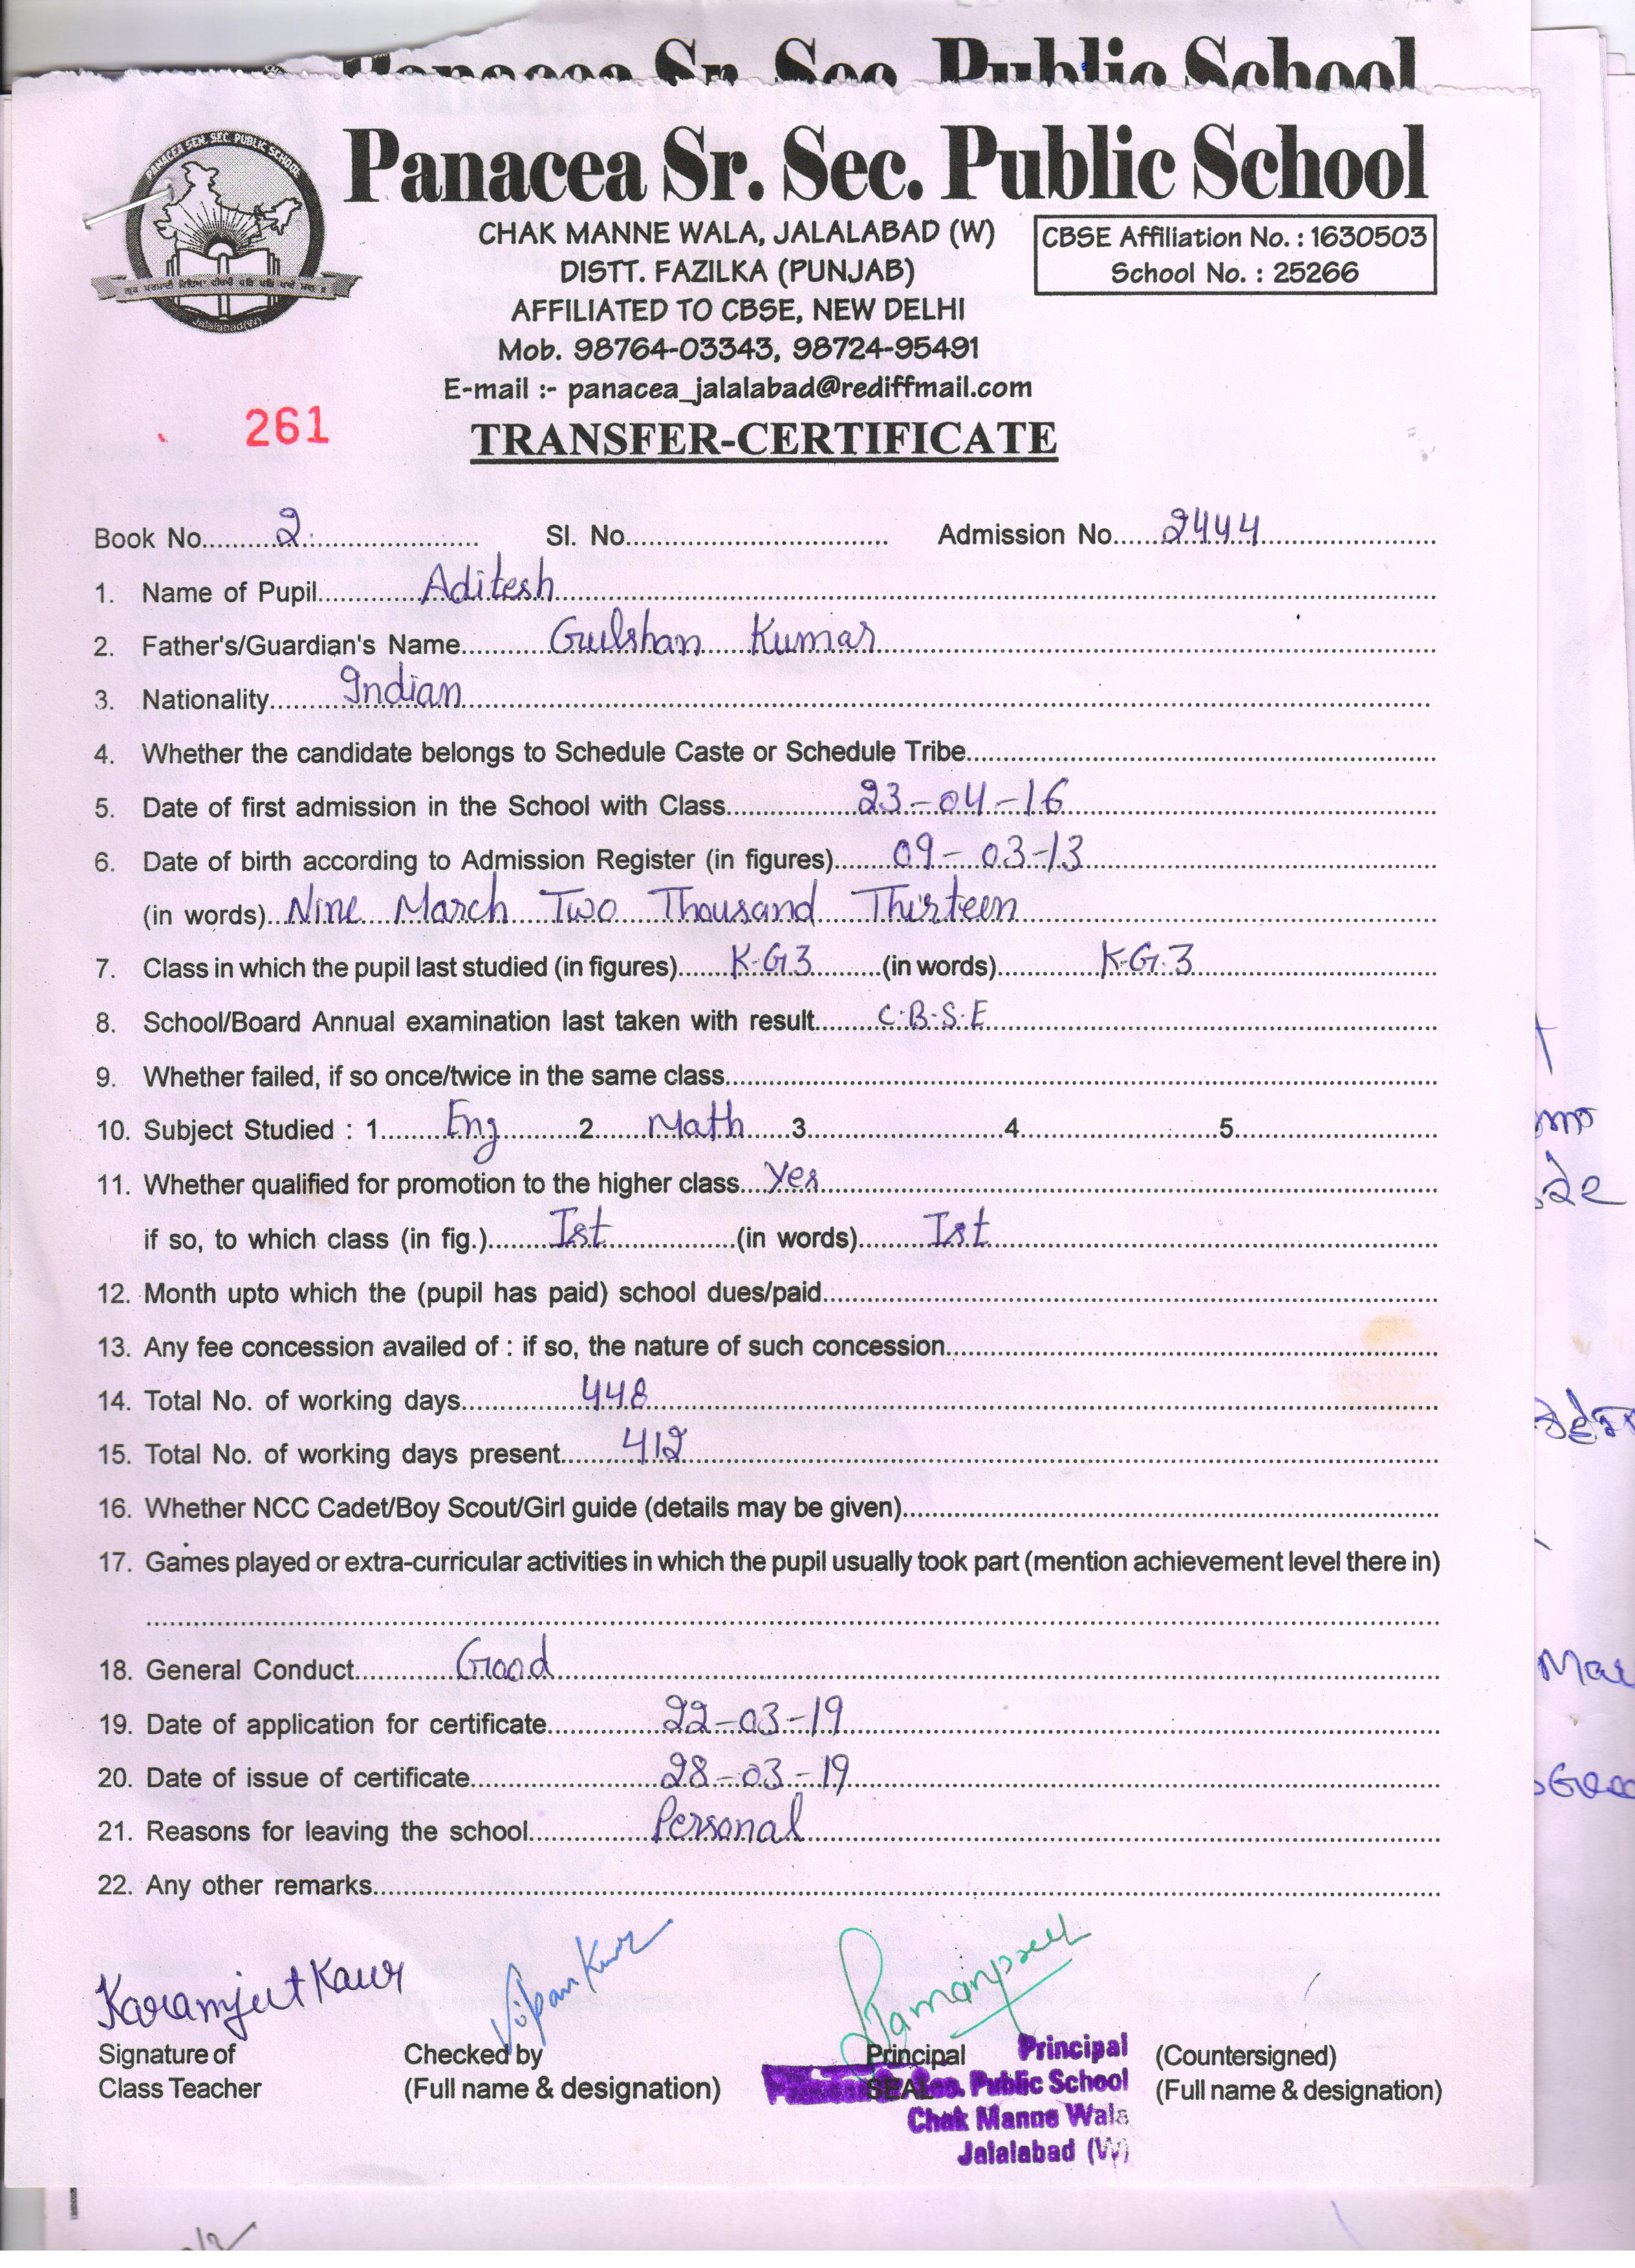 Panacea Sr. Sec. Public School
PANACEA SEN. SEC. PUBLIC SCHOOL
Jalalabad(W)
Panacea Sr. Sec. Public School
CHAK MANNE WALA, JALALABAD (W)
DISTT. FAZILKA (PUNJAB)
AFFILIATED TO CBSE, NEW DELHI
Mob. 98764-03343, 98724-95491
E-mail :- panacea_jalalabad@rediffmail.com
CBSE Affiliation No. : 1630503
School No. : 25266
261
TRANSFER-CERTIFICATE
Book No. 2. Sl. No. Admission No. 2444
1. Name of Pupil Aditesh
2. Father's/Guardian's Name Gulshan Kumar
3. Nationality Indian
4. Whether the candidate belongs to Schedule Caste or Schedule Tribe
5. Date of first admission in the School with Class 23-04-16
6. Date of birth according to Admission Register (in figures) 09-03-13
(in words) Nine March Two Thousand Thirteen
7. Class in which the pupil last studied (in figures) K.G3 (in words) K.G.3
8. School/Board Annual examination last taken with result C.B.S.E
9. Whether failed, if so once/twice in the same class
10. Subject Studied : 1 Eng 2 Math 3 4 5
11. Whether qualified for promotion to the higher class Yes
if so, to which class (in fig.) Ist (in words) Ist
12. Month upto which the (pupil has paid) school dues/paid
13. Any fee concession availed of : if so, the nature of such concession
14. Total No. of working days 448
15. Total No. of working days present 412
16. Whether NCC Cadet/Boy Scout/Girl guide (details may be given)
17. Games played or extra-curricular activities in which the pupil usually took part (mention achievement level there in)
18. General Conduct Good
19. Date of application for certificate 22-03-19
20. Date of issue of certificate 28-03-19
21. Reasons for leaving the school Personal
22. Any other remarks
Karamjeet Kaur Vipan Kumar Ramanpreet
Signature of
Class Teacher
Checked by
(Full name & designation)
Principal
SEAL
Principal
Sec. Public School
Chak Manne Wala
Jalalabad (W)
(Countersigned)
(Full name & designation)